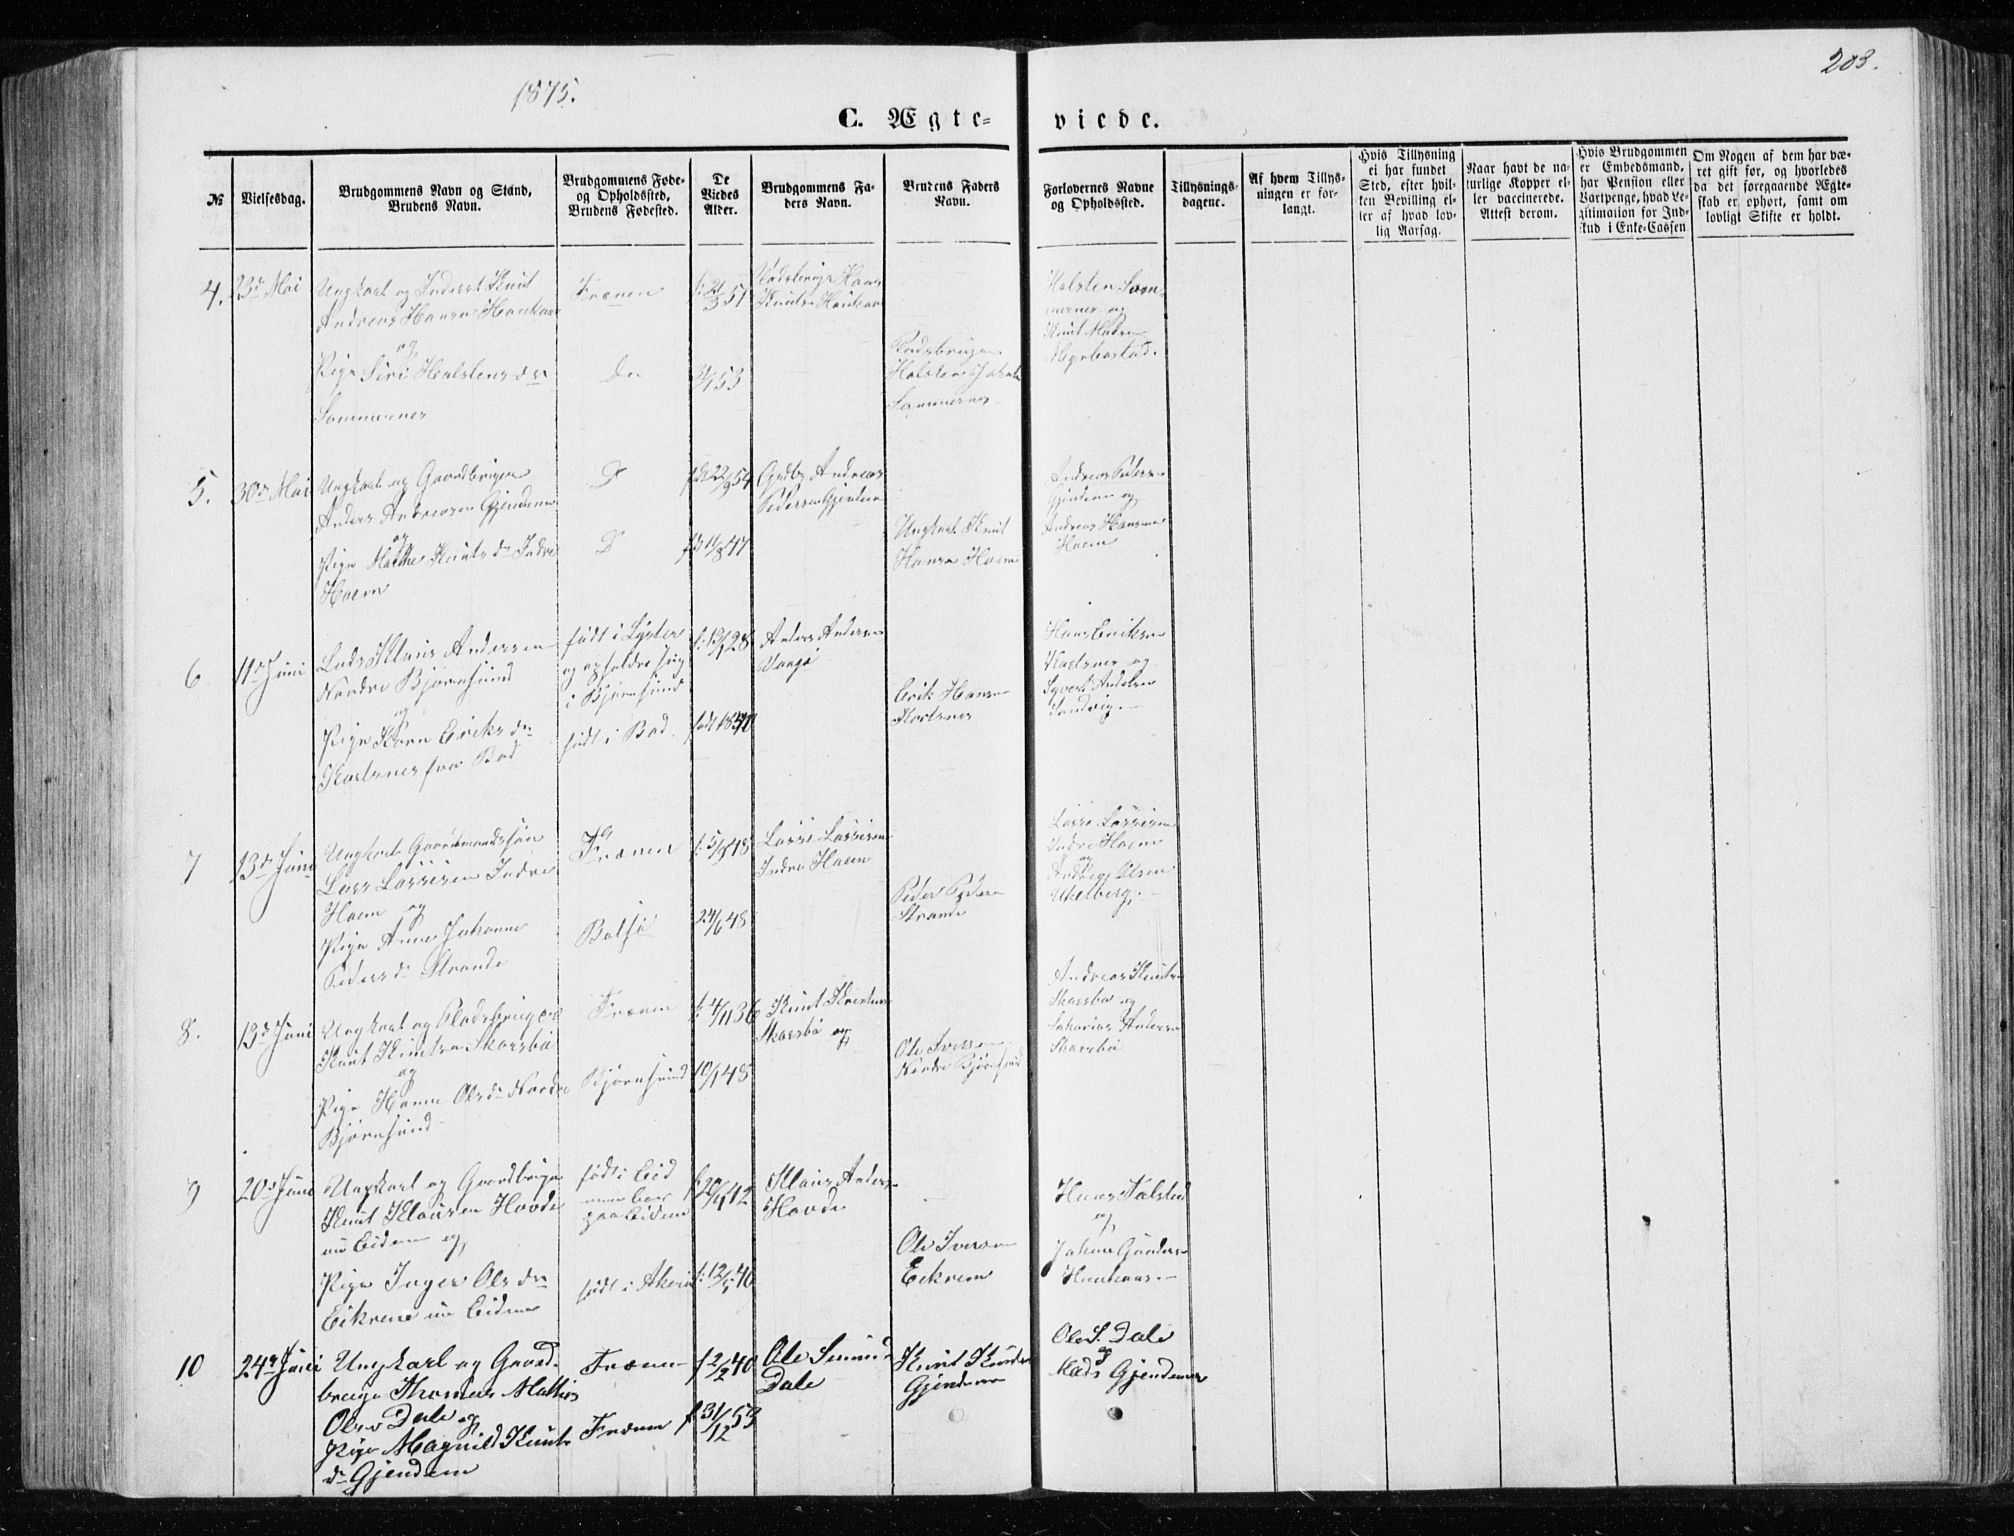 1875.
203.
C. Ægte-
viede.
№
Vielsesdag.
Brudgommens Navn og Stand,
Brudens Navn.
Brudgommens Føde-
og Opholdssted,
Brudens Fødested.
De
Viedes
Alder.
Brudgommens Fa-
ders Navn.
Brudens Faders
Navn.
Forlovernes Navne
og Opholdssted.
Tillysnings-
dagene.
Af hvem Tillys-
ningen er for-
langt.
Hvis Tillysning
ei har fundet
Sted, efter hvil-
ken Bevilling el-
ler af hvad lov-
lig Aarsag.
Naar havt de na-
turlige Kopper el-
ler vaccinerede.
Attest derom.
Hvis Brudgommen
er Embedsmand,
har Pension eller
Vartpenge, hvad Le-
gitimation for Ind-
skud i Enke-Cassen
Om Nogen af dem har væ-
ret gift før, og hvorledes
da det foregaaende Ægte-
skab er ophørt, samt om
lovligt Skifte er holdt.
4.
23de Mai
Ungkarl og Inderst Knut
Andreas Hansen Haukaas
og
Pige Siri Halstensdr
Sommernes
Frænen
Do
f: 21/3 51
53
Pladsbruger Hans
Knutsen Haukaas
Pladsbruger
Halsten
Sommernes
Halsten Som-
mernes og
Knut Madsen
Myrbostad.
5.
30de Mai
Ungkarl og Gaardbruger
Anders Andreasen Gjendem
og
Pige Marthe Knutsdr Indre
Hoem
D
D
22/9 54
11/8 47
Grdbr Andreas
Pedersen Gjendem
Ungkarl Knut
Hansen Hoem
Andreas Peders
Gjendem og
Andreas Hansen
Hoem
6
11te Juni
Lods Klaus Andersen
Nordre Bjørnsund
og
Pige Karn Eriksdr
Hartsnes fra Bod
født i Lyster
og opholder sig
i Bjørnsund
født i Bod.
f: 13/1 28
Anders Andersen
Erik Hansen
Hartsnes
Hans Eriksen
Hartsnes og
Syvert Andersen
Sandvig.
7
13de Juni
Ungkarl Gaardmandssøn
Lars Lassesen Indre
Hoem og
Pige Anne Johanne
Pedersdr Strande
Frænen
Bolsø
f: 5/9 48
24/6 48
Lasse Lassesen
Indre Hoem
Peder Pedersen
Strande
Lasse Lassesen
Indre Hoem
og
Olsen
8.
13de Juni
Ungkarl og Pladsbruger
Knut Knutsen Skarsbø
og
Pige Hanna Olsdr Nordre
Bjørnsund
Frænen
Bjørnsund
f: 4/11 36
10/1 48
Knut Kristens
Skarsbø og
Ole Iversen
Nordre Bjørnsund
Andreas Knuts
Skarsbø og
Zakarias Andersen
Skarsbø
9
20de Juni
Ungkarl og Gaardbruger
Knut Klausen Hovde
nu Eidem og
Pige Inger Olsdr
Eikrem nu Eidem
født i Eid
paa Eidem
født i Akerø
f 20/9 42
f: 12/5 40
Klaus Anders
Hovde
Ole Iversen
Eikrem
Hans Talstad
og
Johan Gunders
Haukaas
10
24de Juni
Ungkarl og Gaard-
bruger Thomas Mathias
Olsen Dale og
Pige Magnild Knuts
dr Gjendem
Frænen
Frænen
f 2/2 40
f. 31/12 53
Ole Simund
Dale
Knut Knudsen
Gjendem
Ole S. Dale
og
Mads Gjendem